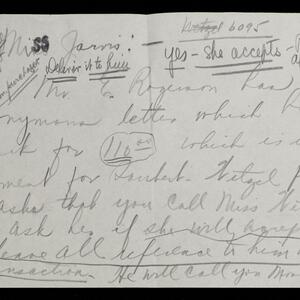 Wetzel 6095
Miss Jarvis:
yes - she accepts -
Deliver it to him
Mr. E Rogerson has
anonymous letter which h
for 110.00 which is
ment for Lambert - Wetzel
asks that you call Miss Wetzel
ask her if she will agree
leave all reference to him
transaction. He will call you Mon